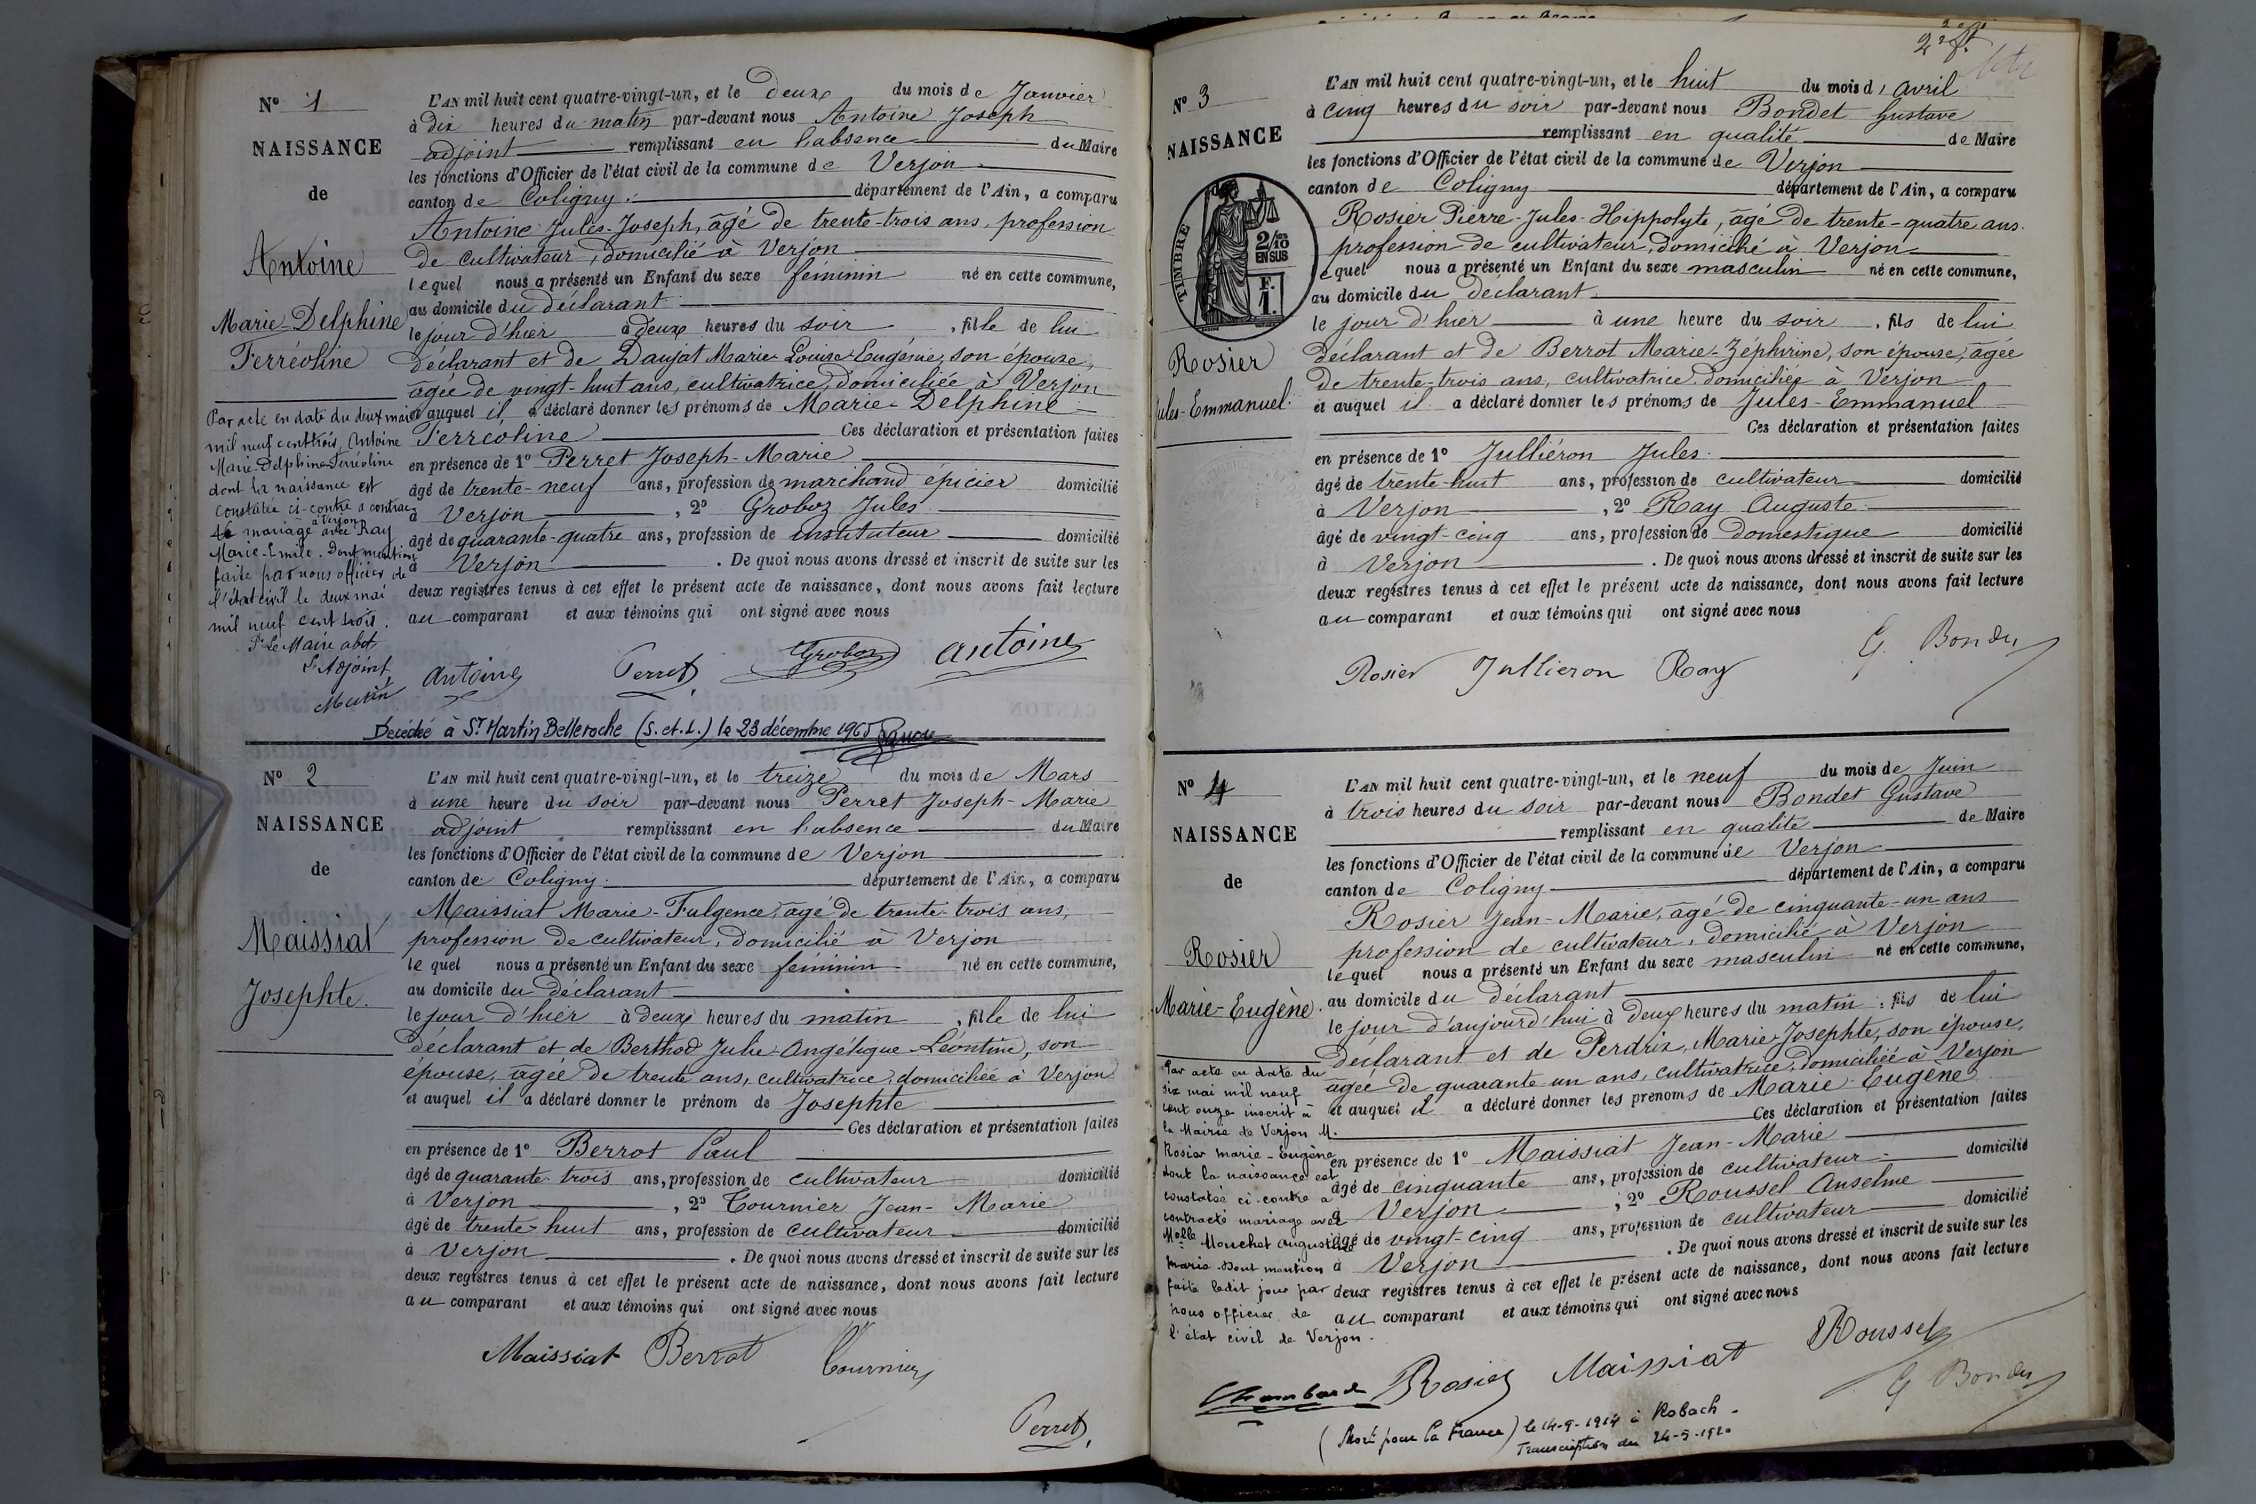 Nº 1
NAISSANCE
de
Antoine
Marie-Delphine
Ferréoline
Par acte en date du deux mai
mil neuf cent trois, Antoine
Marie-Delphine-Ferréoline
dont la naissance est
constatée ci-contre a contrac-
té mariage à Verjon avec Ray
Marie-Emile. Dont mention
faite par nous officier de
l'état civil le deux mai
mil neuf cent trois.
Pr Le Maire abst
L'Adjoint,
L'AN mil huit cent quatre-vingt-un, et le deux du mois de Janvier
à dix heures du matin par-devant nous Antoine Joseph
adjoint remplissant en l'absence du Maire
les fonctions d'Officier de l'état civil de la commune de Verjon
canton de Coligny département de l'Ain, a comparu
Antoine Jules-Joseph, âgé de trente-trois ans, profession
de cultivateur, domicilié à Verjon
lequel nous a présenté un Enfant du sexe féminin né en cette commune,
au domicile du déclarant
le jour d'hier à deux heures du soir, fille de lui
déclarant et de Daujat Marie-Louise-Eugénie, son épouse,
âgée de vingt-huit ans, cultivatrice, domiciliée à Verjon
et auquel il a déclaré donner les prénoms de Marie-Delphine-
Ferréoline Ces déclaration et présentation faites
en présence de 1º Perret Joseph-Marie
âgé de trente-neuf ans, profession de marchand épicier domicilié
à Verjon, 2º Groboz Jules
âgé de quarante-quatre ans, profession de instituteur domicilié
à Verjon. De quoi nous avons dressé et inscrit de suite sur les
deux registres tenus à cet effet le présent acte de naissance, dont nous avons fait lecture
au comparant et aux témoins qui ont signé avec nous
Antoine Perret Groboz Antoine
Décédée à St Martin Belleroche (S.et.L.) le 23 décembre 1965
Nº 2
NAISSANCE
de
Maissiat
Josephte.
L'AN mil huit cent quatre-vingt-un, et le treize du mois de Mars
à une heure du soir par-devant nous Perret Joseph-Marie
adjoint remplissant en l'absence du Maire
les fonctions d'Officier de l'état civil de la commune de Verjon
canton de Coligny département de l'Ain, a comparu
Maissiat Marie-Fulgence, âgé de trente-trois ans,
profession de cultivateur, domicilié à Verjon
lequel nous a présenté un Enfant du sexe féminin né en cette commune,
au domicile du déclarant
le jour d'hier à deux heures du matin, fille de lui
déclarant et de Berthod Julie-Angélique-Léontine, son
épouse, âgée de trente ans, cultivatrice, domiciliée à Verjon
et auquel il a déclaré donner le prénom de Josephte
Ces déclaration et présentation faites
en présence de 1º Berrot Paul
âgé de quarante-trois ans, profession de cultivateur domicilié
à Verjon, 2º Tournier Jean-Marie
âgé de trente-huit ans, profession de cultivateur domicilié
à Verjon. De quoi nous avons dressé et inscrit de suite sur les
deux registres tenus à cet effet le présent acte de naissance, dont nous avons fait lecture
au comparant et aux témoins qui ont signé avec nous
Maissiat Berrot Tournier
Perret
Nº 3
NAISSANCE
TIMBRE
2/10
EN SUS
F.
1.
Rosier
Jules-Emmanuel.
L'AN mil huit cent quatre-vingt-un, et le huit du mois d'avril
à cinq heures du soir par-devant nous Bondet Gustave
remplissant en qualité de Maire
les fonctions d'Officier de l'état civil de la commune de Verjon
canton de Coligny département de l'Ain, a comparu
Rosier Pierre-Jules-Hippolyte, âgé de trente-quatre ans
profession de cultivateur, domicilié à Verjon
lequel nous a présenté un Enfant du sexe masculin né en cette commune,
au domicile du déclarant
le jour d'hier à une heure du soir, fils de lui
déclarant et de Berrot Marie-Zéphirine, son épouse, âgée
de trente-trois ans, cultivatrice, domiciliée à Verjon
et auquel il a déclaré donner les prénoms de Jules-Emmanuel
Ces déclaration et présentation faites
en présence de 1º Julliéron Jules
âgé de trente-huit ans, profession de cultivateur domicilié
à Verjon, 2º Ray Auguste
âgé de vingt-cinq ans, profession de domestique domicilié
à Verjon. De quoi nous avons dressé et inscrit de suite sur les
deux registres tenus à cet effet le présent acte de naissance, dont nous avons fait lecture
au comparant et aux témoins qui ont signé avec nous
Rosier Jullieron Ray G. Bondet
Nº 4
NAISSANCE
de
Rosier
Marie-Eugène.
Par acte en date du
six mai mil neuf
cent onze inscrit à
la Mairie de Verjon M.
Rosier Marie-Eugène
dont la naissance est
constatée ci-contre a
contracté mariage avec
Melle Mouchet Augustine
Maria dont mention
faite ledit jour par
nous officier de
l'état civil de Verjon.
L'AN mil huit cent quatre-vingt-un, et le neuf du mois de Juin
à trois heures du soir par-devant nous Bondet Gustave
remplissant en qualité de Maire
les fonctions d'Officier de l'état civil de la commune de Verjon
canton de Coligny département de l'Ain, a comparu
Rosier Jean-Marie, âgé de cinquante-un ans
profession de cultivateur, domicilié à Verjon
lequel nous a présenté un Enfant du sexe masculin né en cette commune,
au domicile du déclarant
le jour d'aujourd'hui à deux heures du matin, fils de lui
déclarant et de Perdrix, Marie-Josephte, son épouse,
âgée de quarante un ans, cultivatrice, domiciliée à Verjon
et auquel il a déclaré donner les prénoms de Marie-Eugène
Ces déclaration et présentation faites
en présence de 1º Maissiat Jean-Marie
âgé de cinquante ans, profession de cultivateur domicilié
à Verjon, 2º Roussel Anselme
âgé de vingt-cinq ans, profession de cultivateur domicilié
à Verjon. De quoi nous avons dressé et inscrit de suite sur les
deux registres tenus à cet effet le présent acte de naissance, dont nous avons fait lecture
au comparant et aux témoins qui ont signé avec nous
Chambard Rosier Maissiat Roussel
G Bondet
(Mort pour la France) le 14-9-1914 à Robach -
Transcription du 24-5-1920